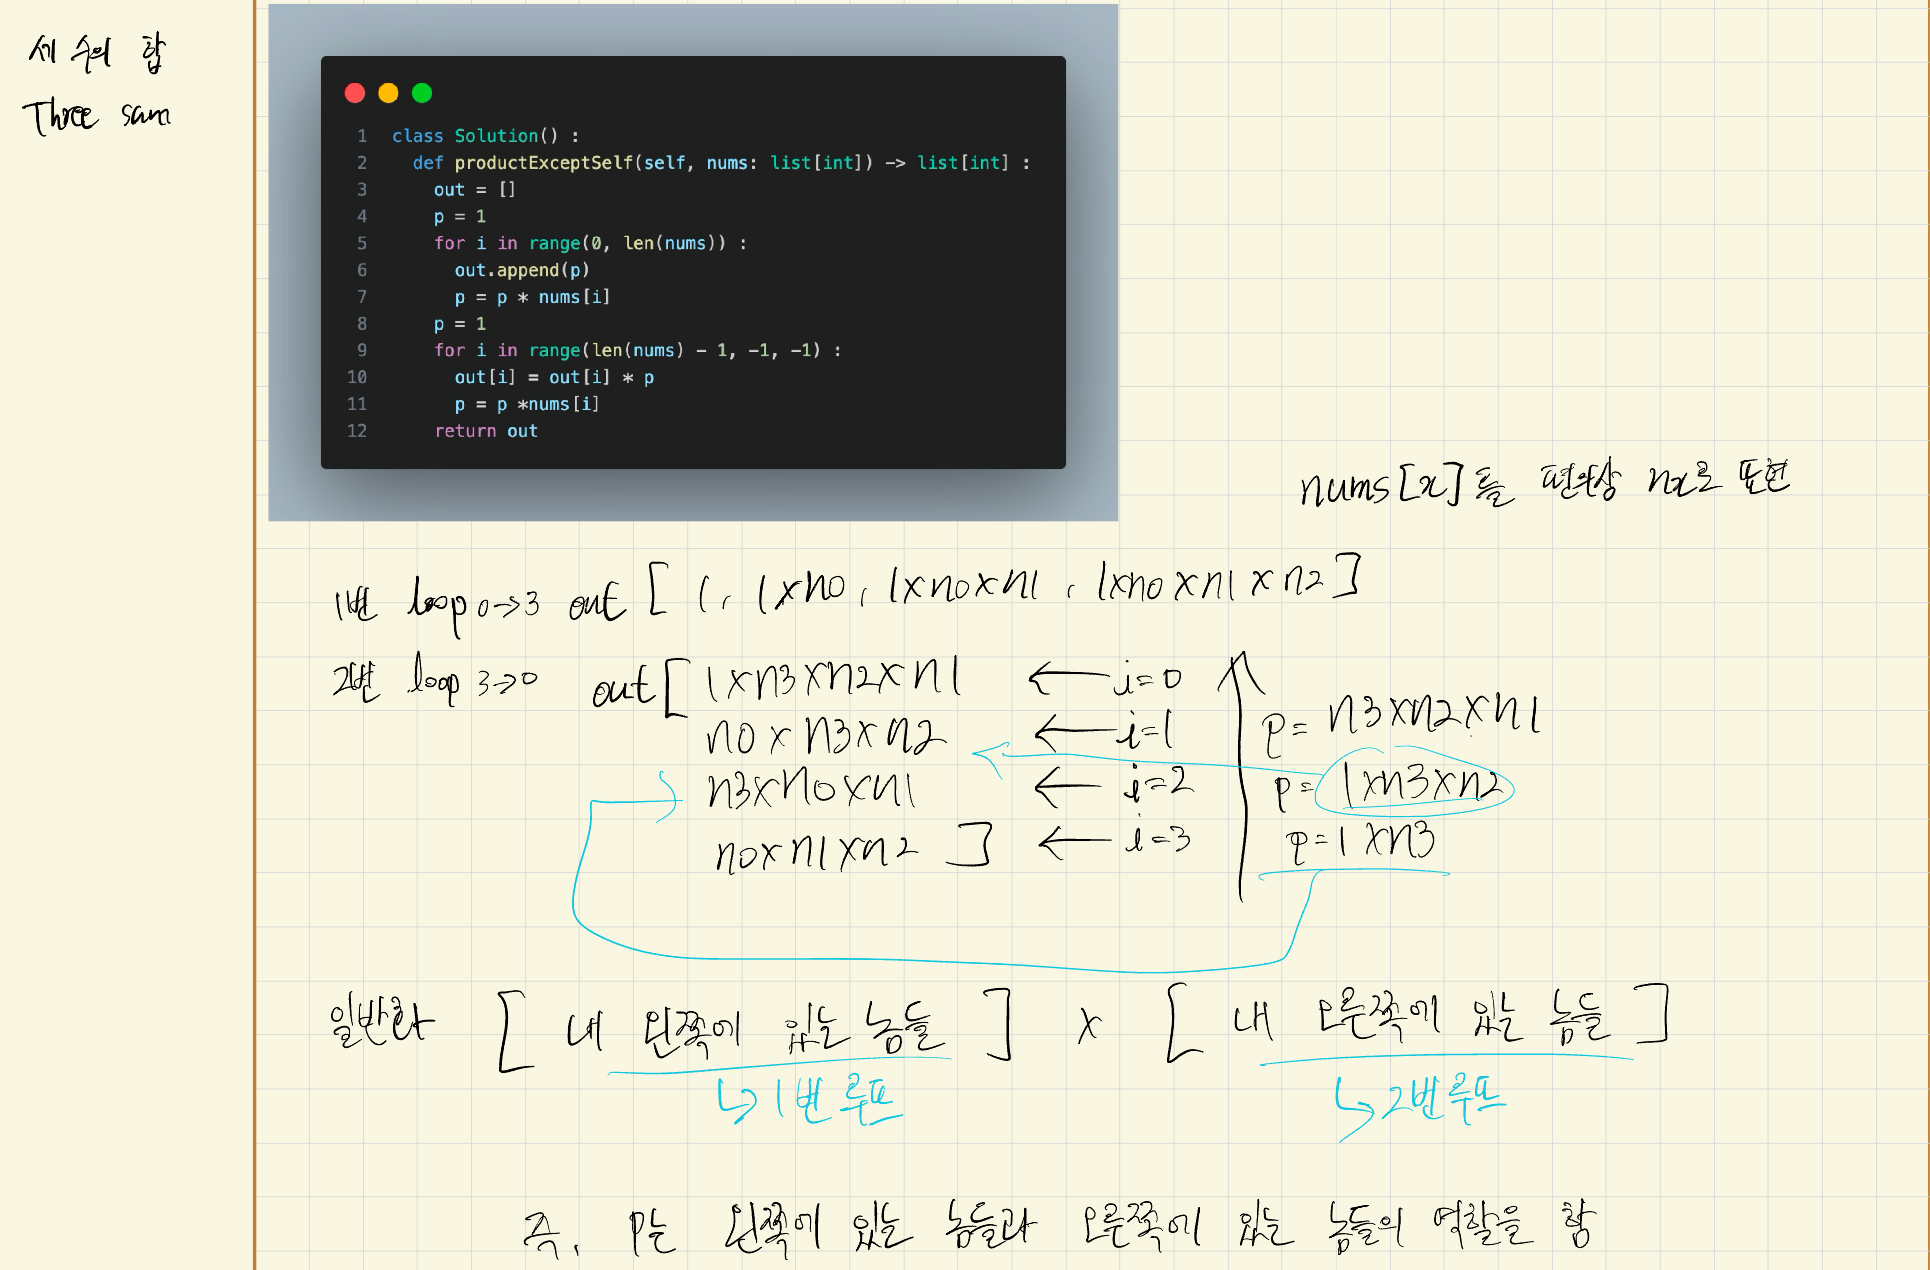 세 수의 합
Three sam
1 class Solution() :
2 def productExceptSelf(self, nums: list[int]) -> list[int] :
3 out = []
4 p = 1
5 for i in range(0, len(nums)) :
6 out.append(p)
7 p = p * nums[i]
8 p = 1
9 for i in range(len(nums) - 1, -1, -1) :
10 out[i] = out[i] * p
11 p = p *nums[i]
12 return out
nums[x]를 편의상 nx로 표현
1번 loop 0->3 out [ 1, 1xn0, 1xn0xn1, 1xn0xn1xn2]
2번 loop 3->0 out[ 1xn3xn2xn1 ← i=0
n0xn3xn2 ← i=1 p= n3xn2xn1
n3xn0xn1 ← i=2 p= 1xn3xn2
n0xn1xn2 ] ← i=3 p=1xn3
일반화 [ 내 왼쪽에 있는 놈들 ] x [ 내 오른쪽에 있는 놈들 ]
↳1번 루프 ↳2번루프
즉, p는 왼쪽에 있는 놈들과 오른쪽에 있는 놈들의 역할을 함